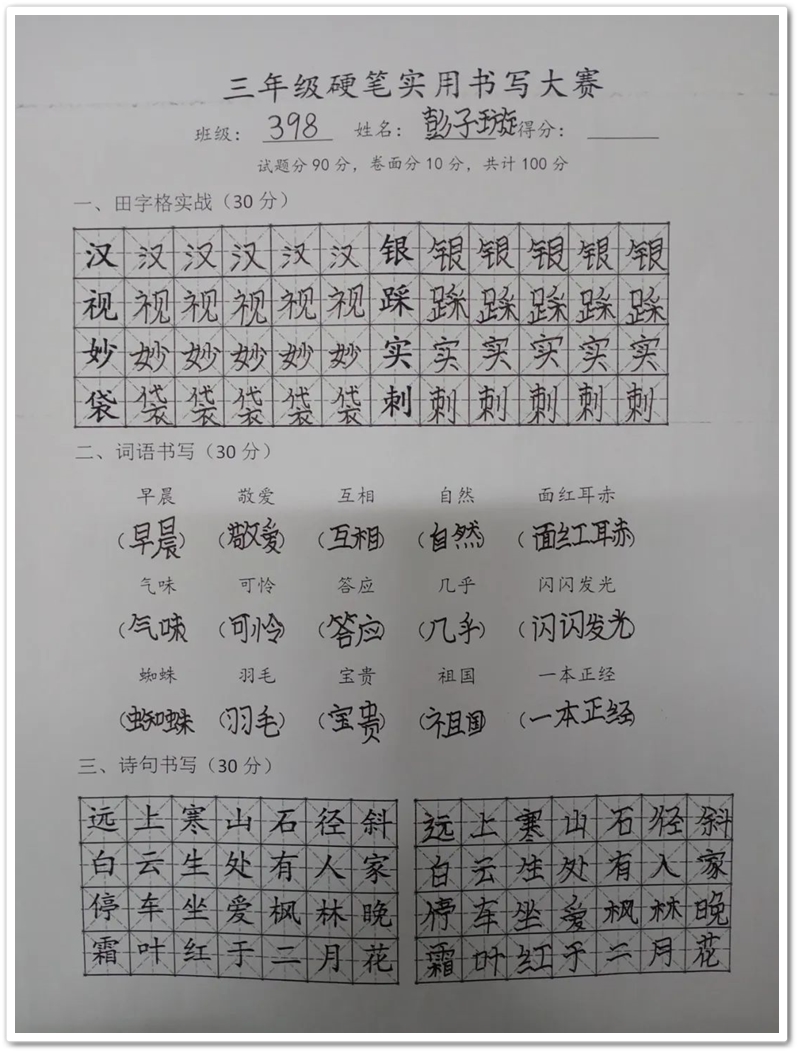 三年级硬笔实用书写大赛
班级：398 姓名：彭子璇 得分：
试题分90分，卷面分10分，共计100分
一、田字格实战（30分）
汉汉汉汉汉汉银银银银银银
视视视视视视踩踩踩踩踩踩
妙妙妙妙妙妙实实实实实实
袋袋袋袋袋袋刺刺刺刺刺刺
二、词语书写（30分）
早晨 敬爱 互相 自然 面红耳赤
（早晨）（敬爱）（互相）（自然）（面红耳赤）
气味 可怜 答应 几乎 闪闪发光
（气味）（可怜）（答应）（几乎）（闪闪发光）
蜘蛛 羽毛 宝贵 祖国 一本正经
（蜘蛛）（羽毛）（宝贵）（祖国）（一本正经）
三、诗句书写（30分）
远上寒山石径斜 远上寒山石径斜
白云生处有人家 白云生处有人家
停车坐爱枫林晚 停车坐爱枫林晚
霜叶红于二月花 霜叶红于二月花